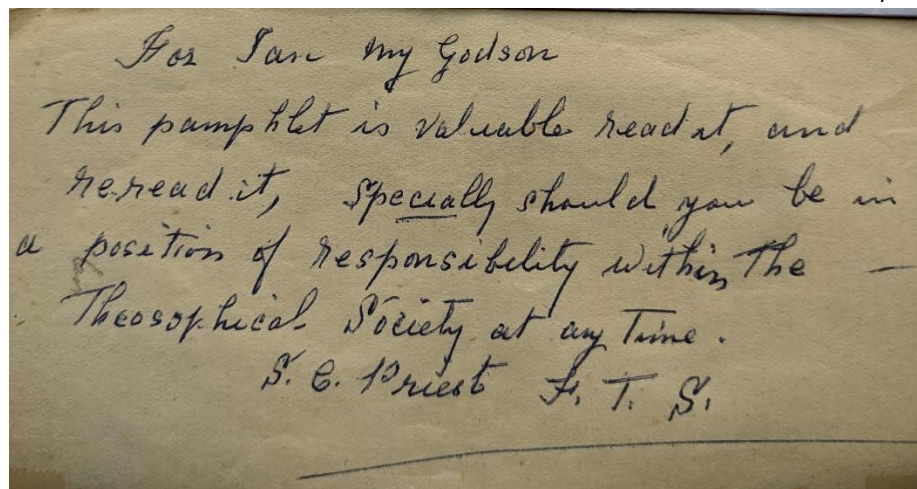 For Ian my Godson
This pamphlet is valuable read it, and
re-read it, specially should you be in
a position of responsibility within The —
Theosophical Society at any Time.
S. C. Priest F. T. S.